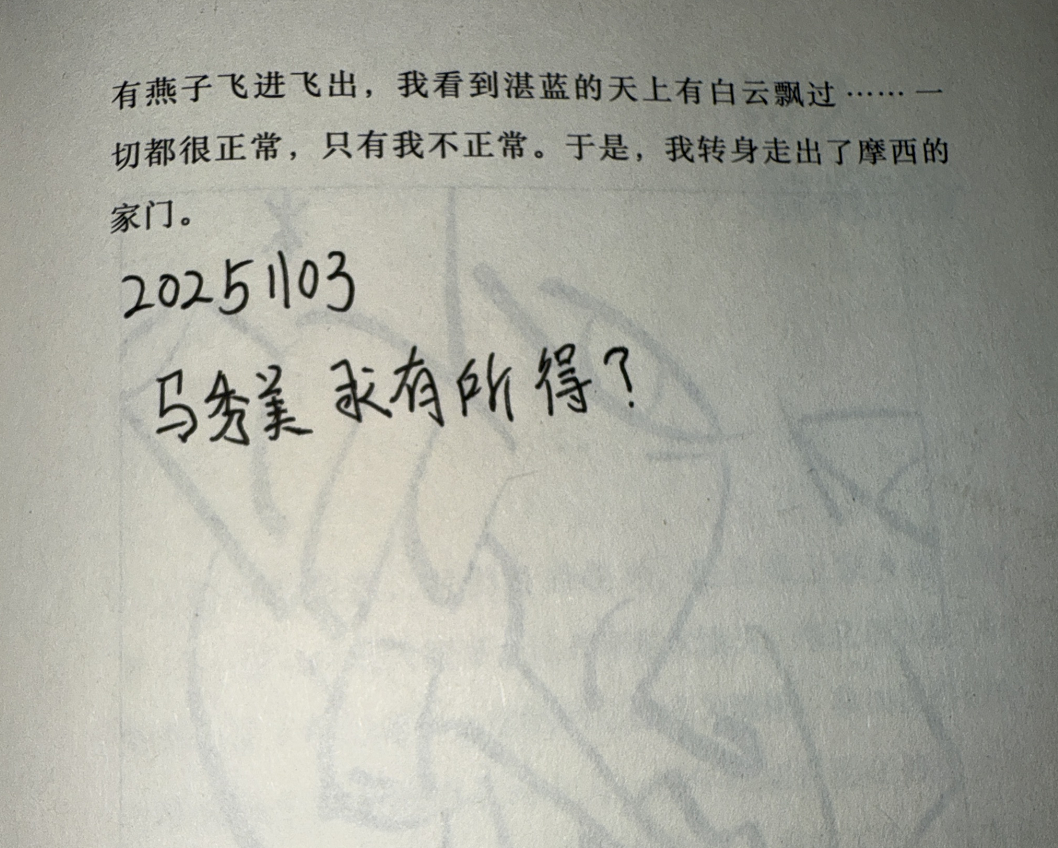 有燕子飞进飞出，我看到湛蓝的天上有白云飘过……一
切都很正常，只有我不正常。于是，我转身走出了摩西的
家门。
20251103
马秀美 求有所得？